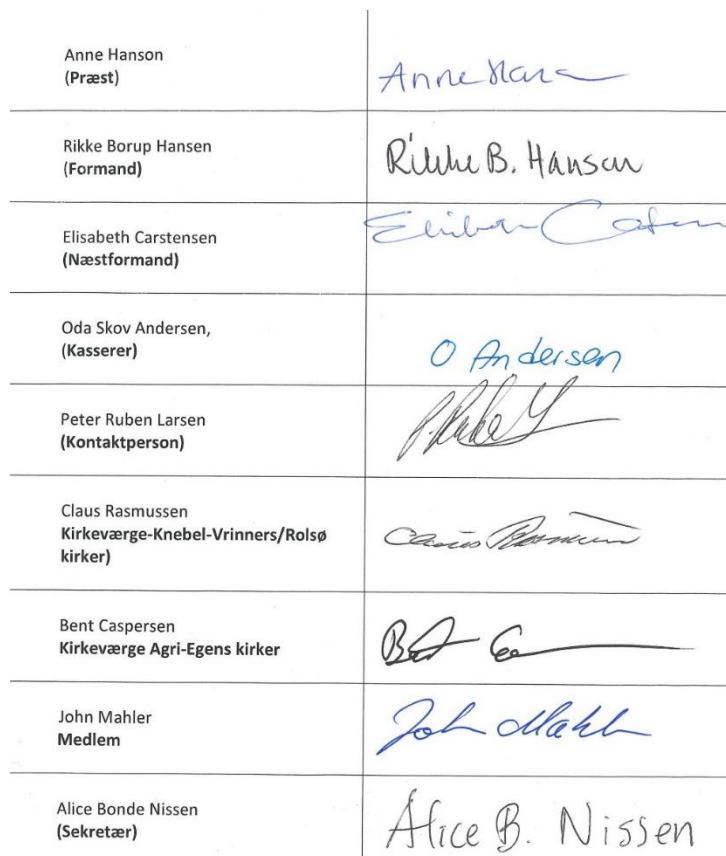 Anne Hanson
(Præst)
Anne Han
Rikke Borup Hansen
(Formand)
Rikke B. Hansen
Elisabeth Carstensen
(Næstformand)
Oda Skov Andersen,
(Kasserer)
O Andersen
Peter Ruben Larsen
(Kontaktperson)
Claus Rasmussen
Kirkeværge-Knebel-Vrinners/Rolsø
kirker)
Claus Rasmussen
Bent Caspersen
Kirkeværge Agri-Egens kirker
John Mahler
Medlem
John Mahler
Alice Bonde Nissen
(Sekretær)
Alice B. Nissen